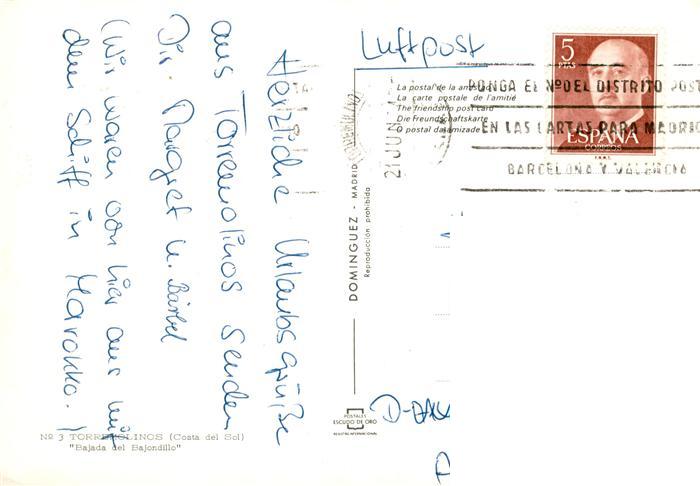 Herzliche Urlaubsgrüße
aus Torremolinos senden
Dir Margret u. Bärbel
(Wir waren von hier aus mit
dem Schiff in Marokko.)
Nº 3 TORREMOLINOS (Costa del Sol)
"Bajada del Bajondillo"
DOMINGUEZ - MADRID
Reproducción prohibida
POSTALES
ESCUDO DE ORO
REGISTRO INTERNACIONAL
Luftpost
La postal de la amistad
La carte postale de l'amitié
The friendship post card
Die Freundschaftskarte
O postal da amizade
21 JUN
PONGA EL Nº DEL DISTRITO POST
EN LAS CARTAS PARA MADRID
BARCELONA Y VALENCIA
5
PTAS
ESPAÑA
CORREOS
D-